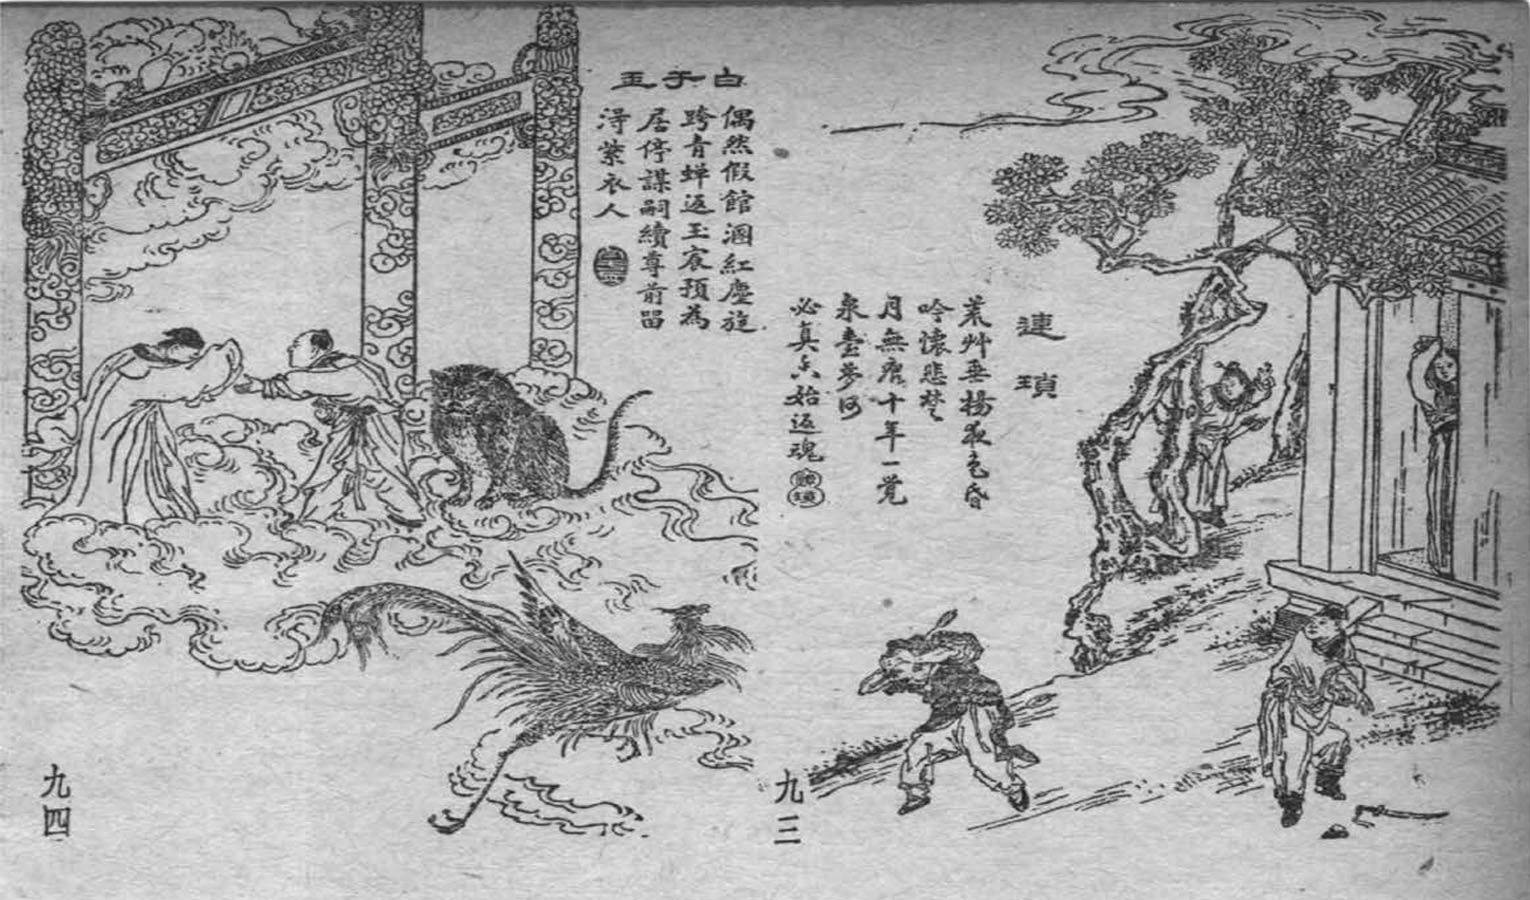 連瑣
荒艸垂楊夜色昏
吟懷悲楚
月無痕十年一覺
泉臺夢何
必真々始返魂
九三
白于玉
偶然假館溷紅塵旋
跨青蟬返玉宸預為
居停謀嗣續尊前留
淂紫衣人
九四